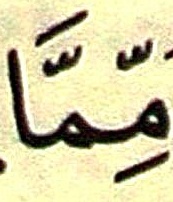 مِّمَّا